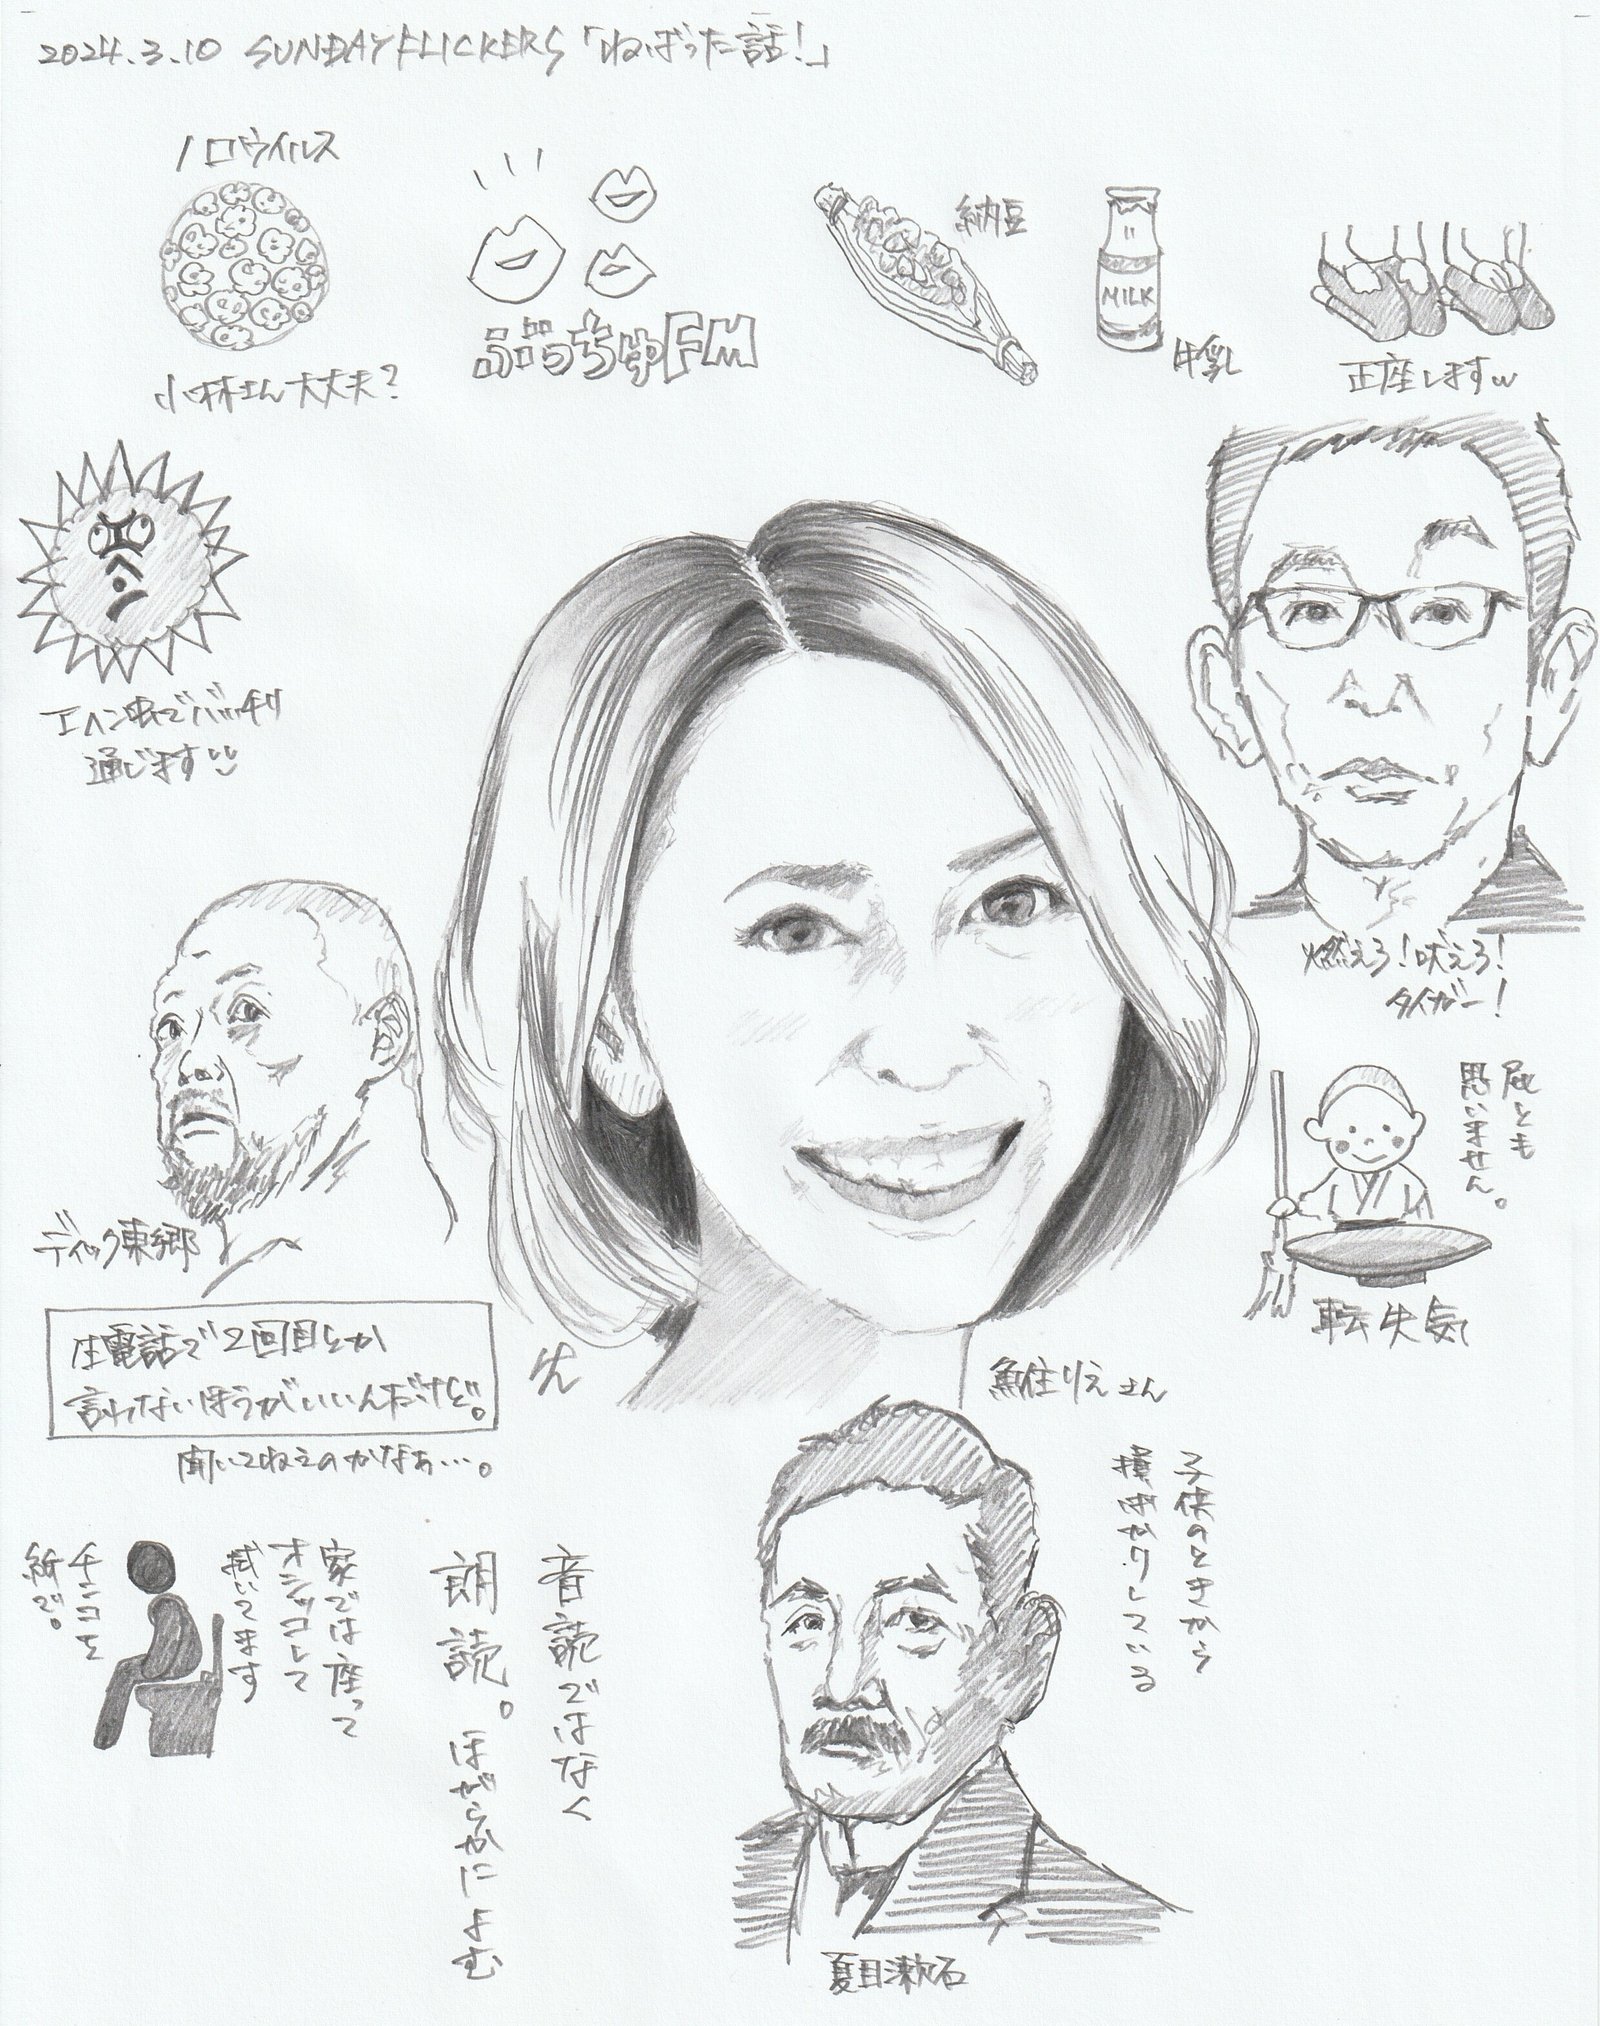 2024.3.10 SUNDAYFLICKERS「ねばった話!」
ノロウイルス
小林さん大丈夫?
ぶっちゅFM
納豆
MILK
牛乳
正座しますw
エヘン虫でバッチリ
通じます
燃えろ!吠えろ!
タイガー!
屁とも
思いません。
転失気
ディック東郷
生電話で2回目とか
言わないほうがいいんだけど。
聞いてねえのかなぁ…。
魚住りえさん
子供のときから
損ばかりしている
夏目漱石
音読ではなく
朗読。ほがらかによむ
家では座って
オシッコして
拭いてます
チンコを
紙で。